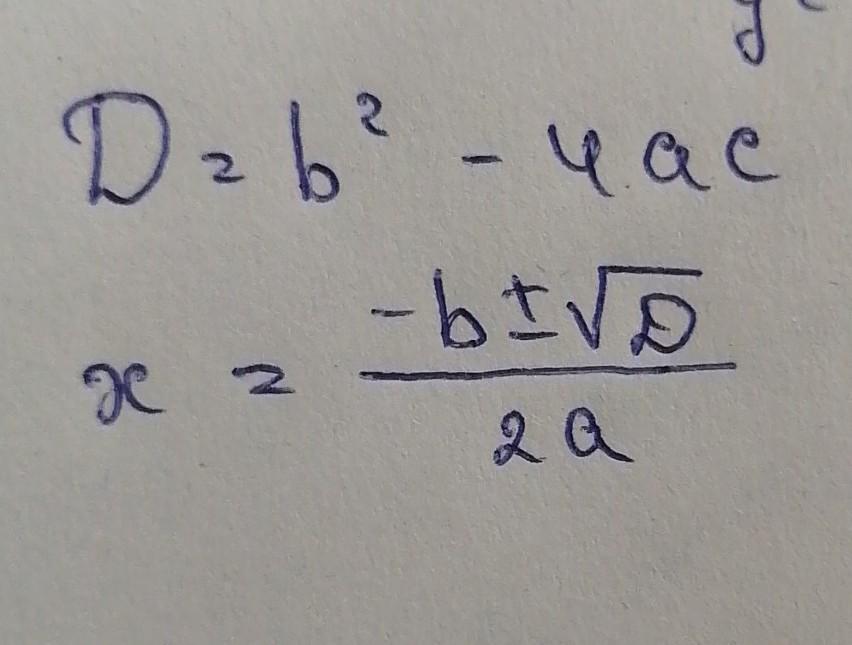 D = b² - 4ac
x = (-b ± √D) / 2a